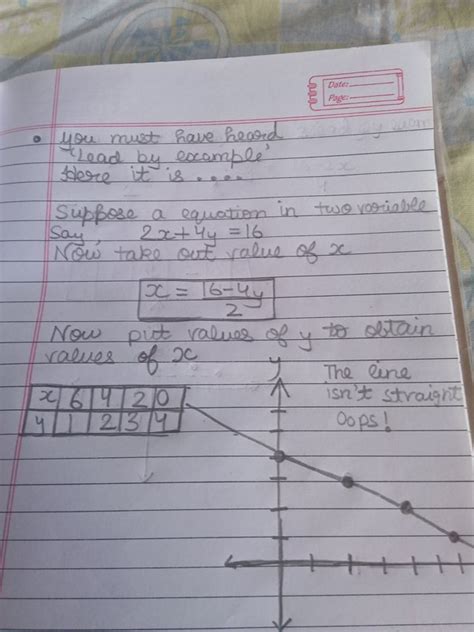 Date:
Page:
• you must have heard
'Lead by example'
Here it is ....
Suppose a equation in two variable
Say, 2x+4y=16
Now take out value of x
x = 16-4y
2
Now put values of y to obtain
values of x
x 6 4 2 0
y 1 2 3 4
y
The line
isn't straight
Oops!